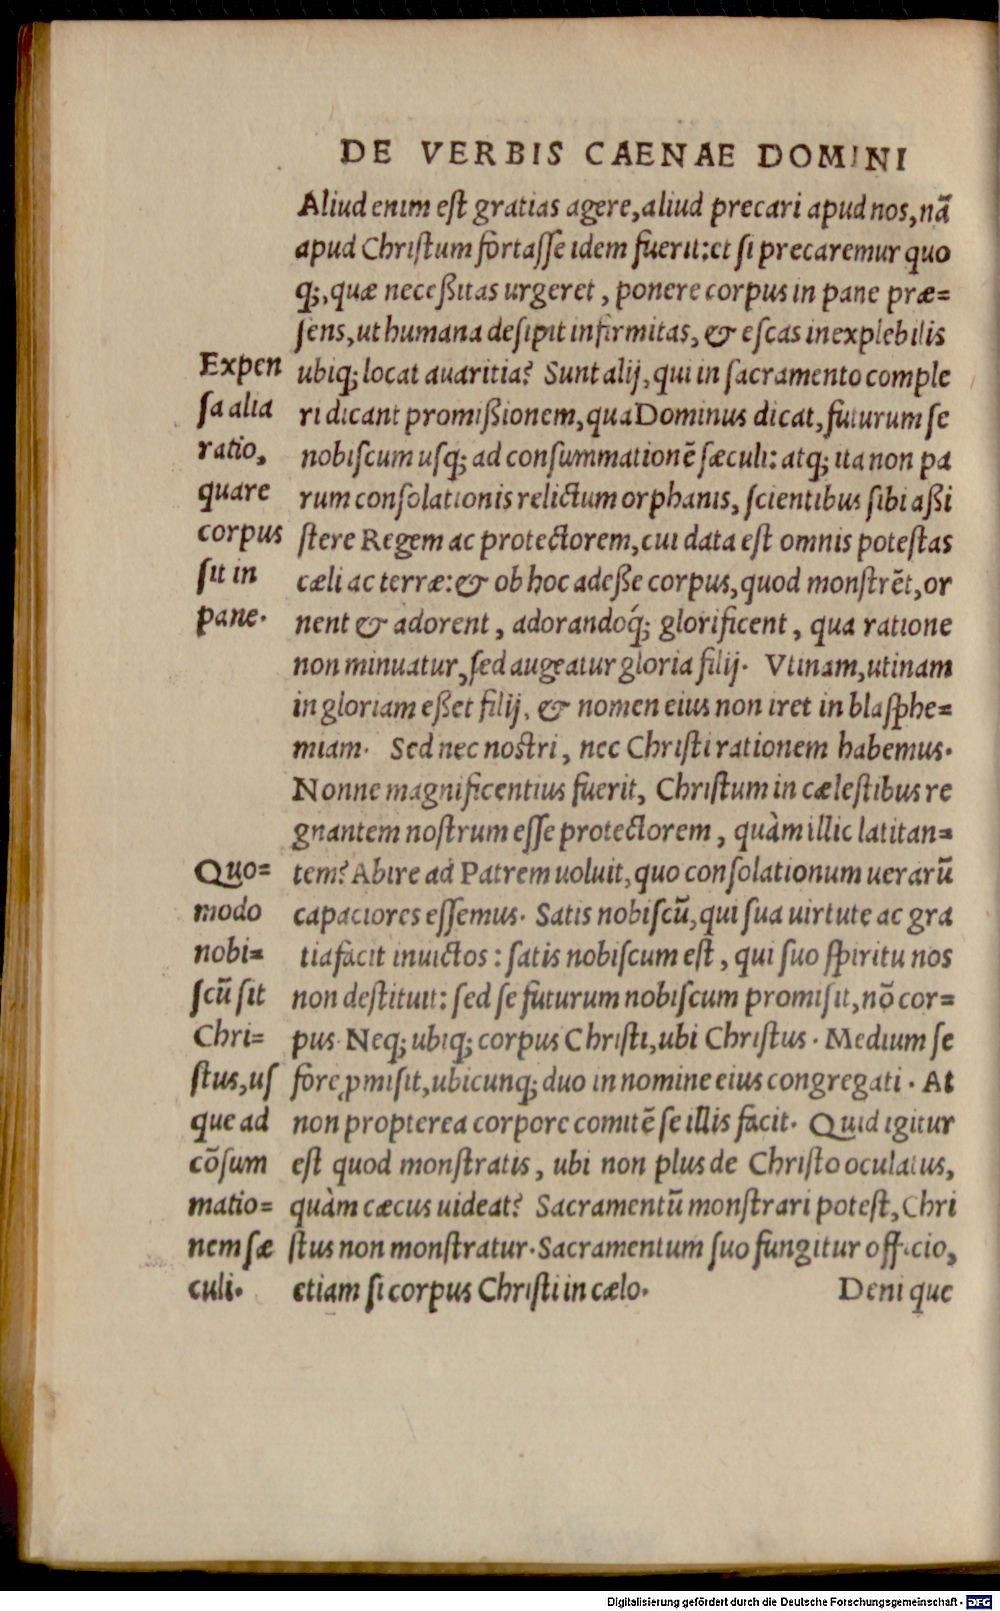 DE VERBIS CAENAE DOMINI
Aliud enim est gratias agere, aliud precari apud nos, nã
apud Christum fortasse idem fuerit: et si precaremur quo
q;, quæ neceßitas urgeret, ponere corpus in pane præ=
sens, ut humana desipit infirmitas, & escas inexplebilis
ubiq; locat auaritia? Sunt alij, qui in sacramento comple
ri dicant promißionem, qua Dominus dicat, futurum se
nobiscum usq; ad consummationẽ sæculi: atq; ita non pa
rum consolationis relictum orphanis, scientibus sibi aßi
stere Regem ac protectorem, cui data est omnis potestas
cæli ac terræ: & ob hoc adeße corpus, quod monstrẽt, or
nent & adorent, adorandoq́; glorificent, qua ratione
non minuatur, sed augeatur gloria filij. Vtinam, utinam
in gloriam eßet filij, & nomen eius non iret in blasphe=
miam. Sed nec nostri, nec Christi rationem habemus.
Nonne magnificentius fuerit, Christum in cælestibus re
gnantem nostrum esse protectorem, quàm illic latitan=
tem? Abire ad Patrem uoluit, quo consolationum uerarũ
capaciores essemus. Satis nobiscũ, qui sua uirtute ac gra
tia facit inuictos: satis nobiscum est, qui suo spiritu nos
non destituit: sed se futurum nobiscum promisit, nõ cor=
pus. Neq; ubiq; corpus Christi, ubi Christus. Medium se
fore ꝓmisit, ubicunq; duo in nomine eius congregati. At
non propterea corpore comitẽ se illis facit. Quid igitur
est quod monstratis, ubi non plus de Christo oculatus,
quàm cæcus uideat? Sacramentũ monstrari potest, Chri
stus non monstratur. Sacramentum suo fungitur officio,
etiam si corpus Christi in cælo.
Denique
Expen
sa alia
ratio,
quare
corpus
sit in
pane.
Quo=
modo
nobi=
scũ sit
Chri=
stus, us
que ad
cõsum
matio=
nem sæ
culi.
Digitalisierung gefördert durch die Deutsche Forschungsgemeinschaft - DFG